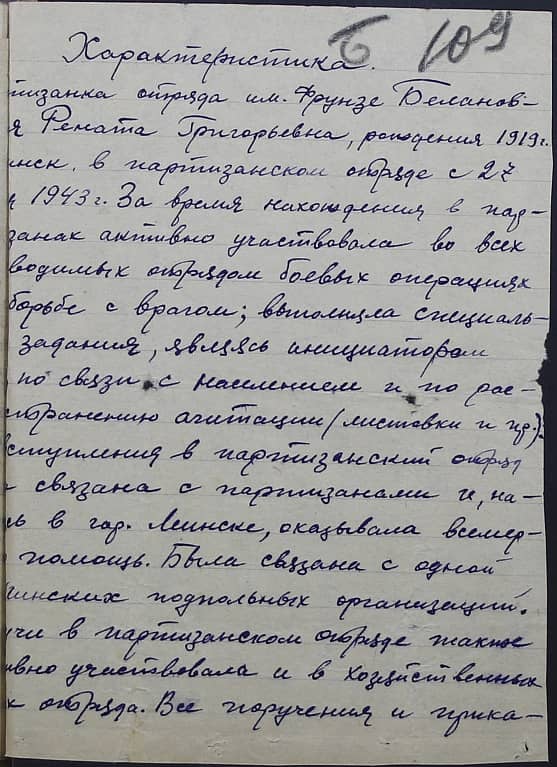 Б 109
Характеристика.
тизанка отряда им. Фрунзе Беланов-
я Рената Григорьевна, рождения 1919 г.
инск. в партизанском отряде с 27
1943 г. За время нахождения в пар-
занах активно участвовала во всех
водимых отрядом боевых операциях
борьбе с врагом; выполняла специаль-
задания, являясь инициатором
по связи с населением и по рас-
странению агитации (листовки и пр.).
вступления в партизанский отряд
связана с партизанами и, на-
сь в гор. Минске, оказывала всемер-
помощь. Была связана с одной
минских подпольных организаций.
учи в партизанском отряде также
ивно участвовала и в хозяйственных
х отряда. Все поручения и прика-